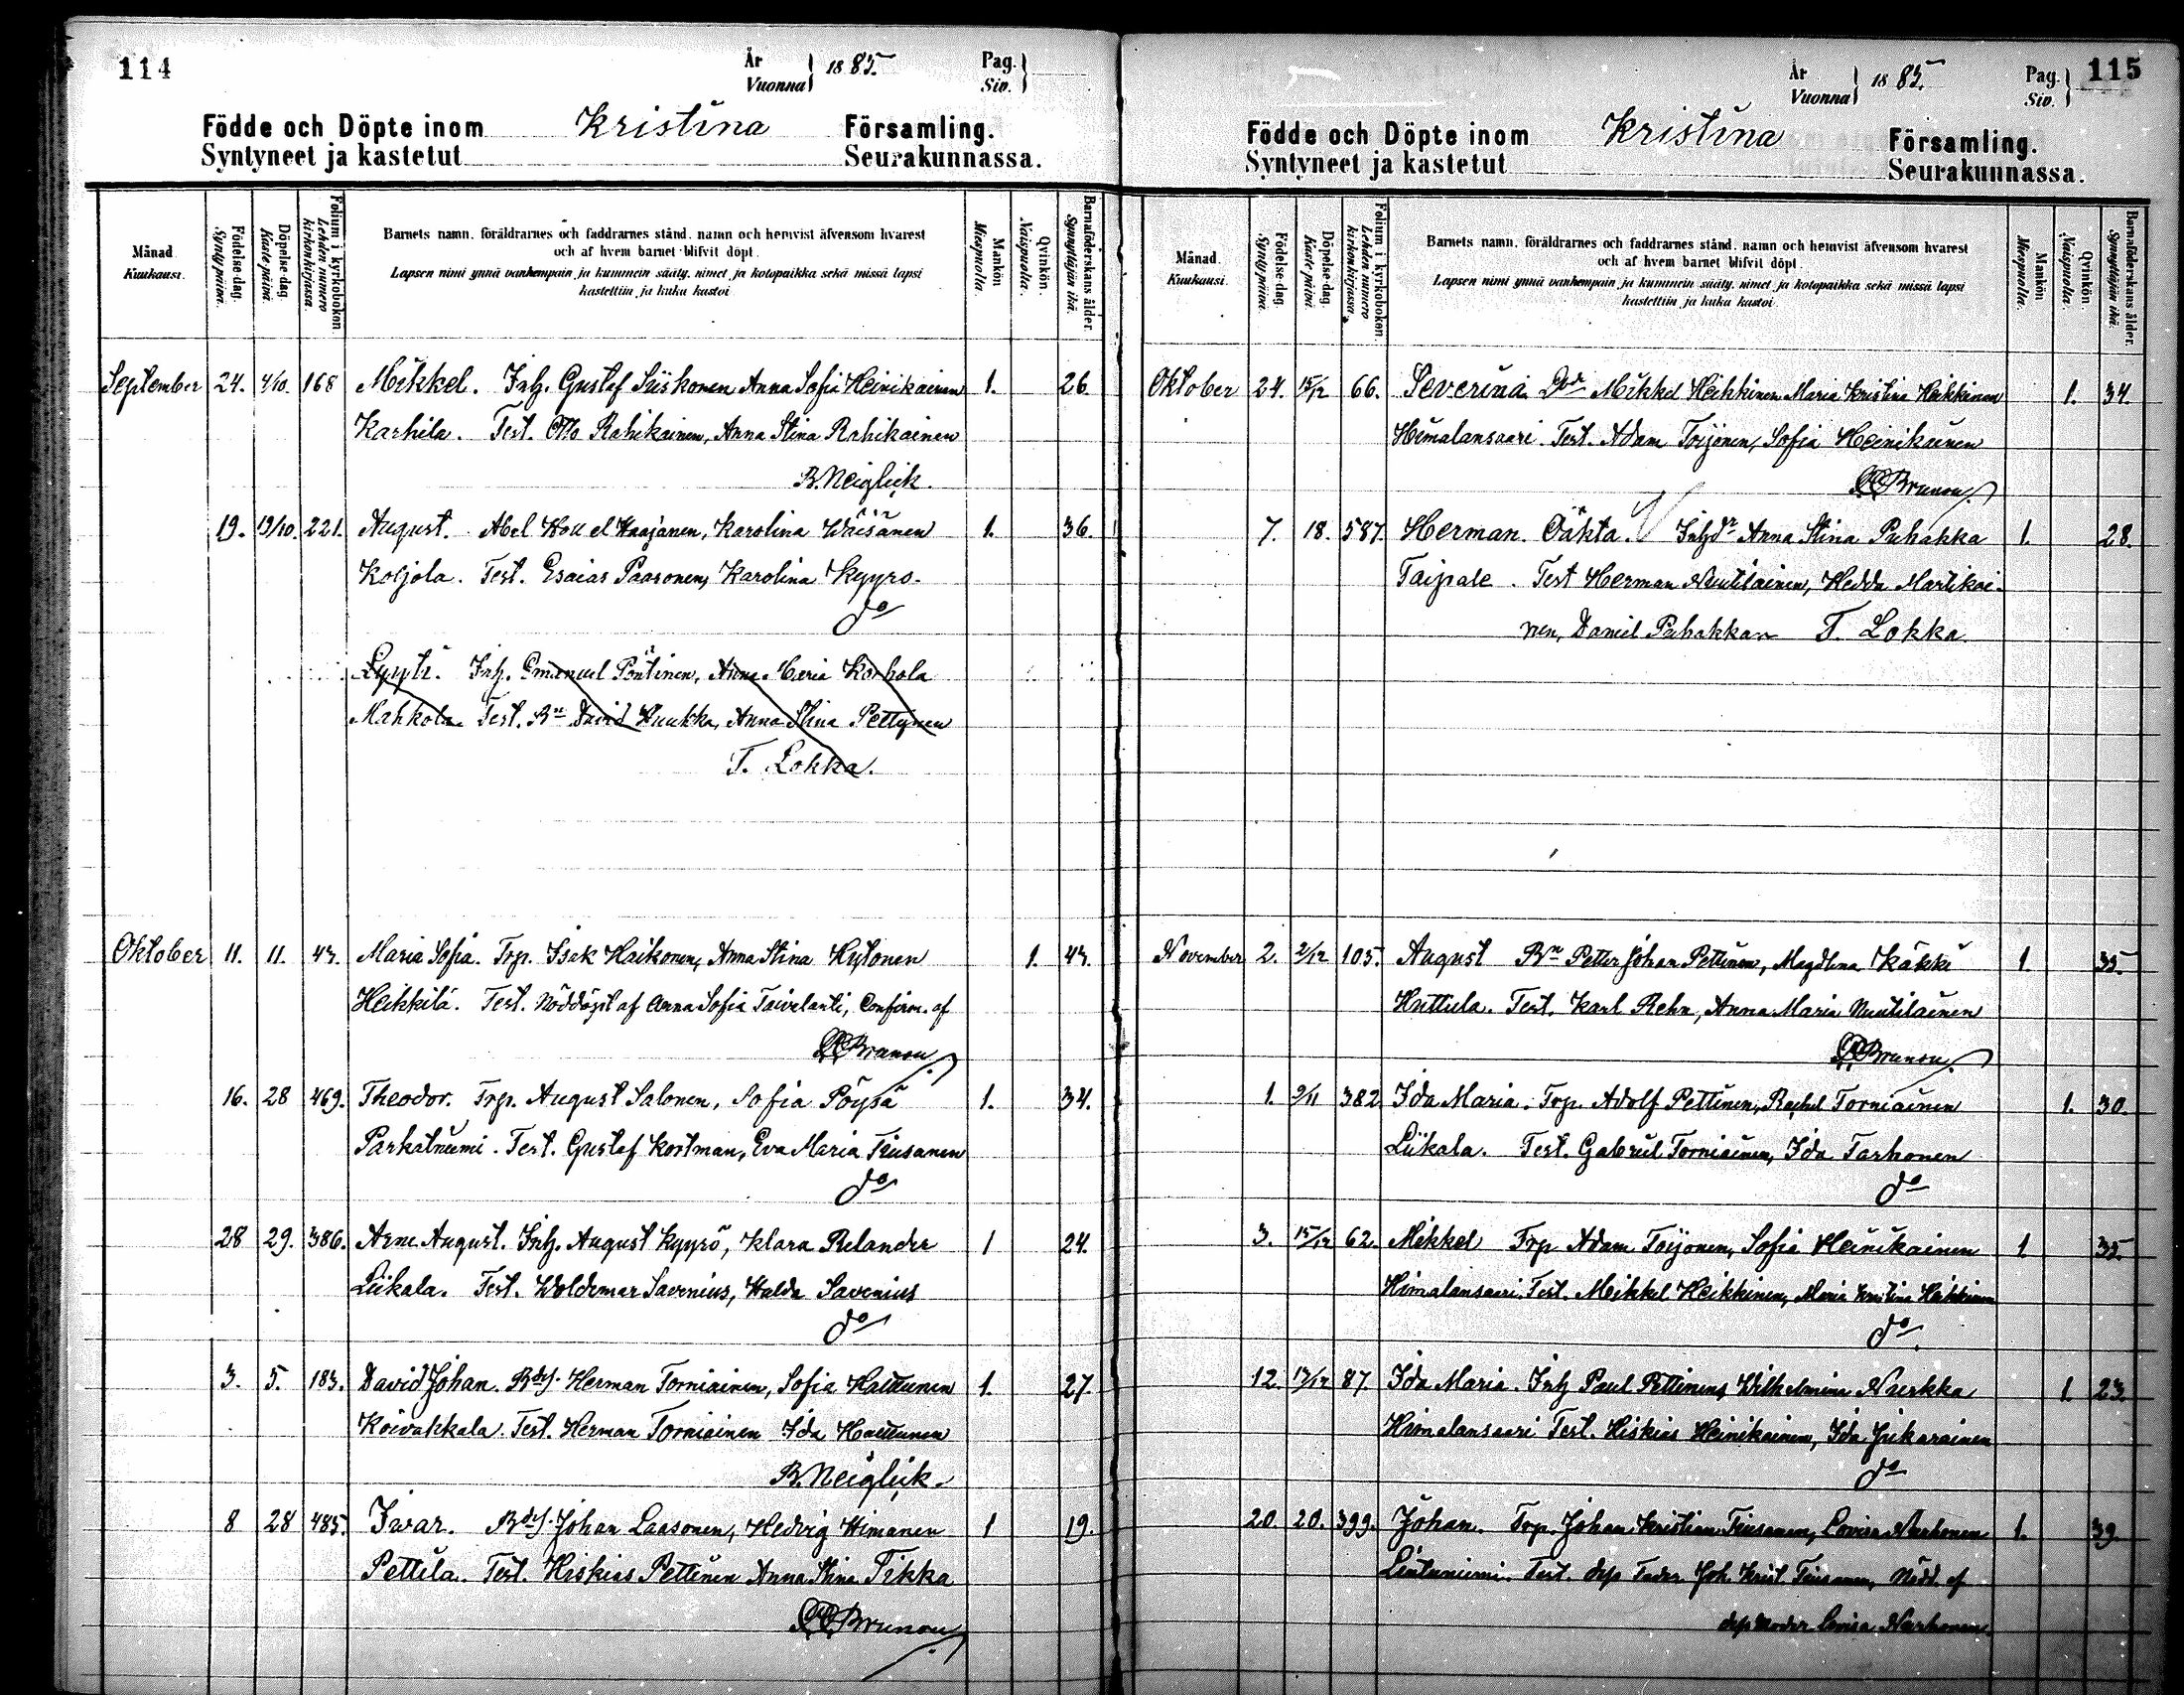 114
År
Vuonna
1885.
Pag.
Siv.
Födde och Döpte inom Kristina Församling.
Syntyneet ja kastetut Seurakunnassa.
Månad.
Kuukausi.
Födelse-dag.
Synty päivä.
Döpelse-dag.
Kaste-päivä.
Folium i kyrkoboken.
Lehden numero kirkonkirjassa.
Barnets namn, föräldrarnes och faddrarnes stånd, namn och hemvist äfvensom hvarest
och af hvem barnet blifvit döpt.
Lapsen nimi ynnä vanhempain ja kummein sääty, nimet ja kotopaikka sekä missä lapsi
kastettiin ja kuka kastoi
Mankön
Miespuolia.
Qvinkön.
Naispuolia.
Barnaföderskans ålder.
Synnyttäjän ikä.
September 24. 4/10. 168 Mikkel. Inh. Gustaf Siiskonen Anna Sofia Heinikainen 1. 26.
Karhila. Test. Otto Rahikainen, Anna Stina Rahikainen
B. Neiglick.
19. 19/10. 221. August. Abel Haajanen, Karolina Wäisänen 1. 36.
Koljola. Test. Esaias Paasonen, Karolina Kyyrö.
do
Lyyti. Inh. Emanuel Pöntinen, Anna Maria Korhola
Mahkola Test. Bn David Kuukka, Anna Stina Pettynen
T. Lokka.
Oktober 11. 11. 43. Maria Sofia. Trp. Isak Haikonen, Anna Stina Hytonen 1. 43.
Heikkilä. Test. Nöddöpt af Anna Sofia Taivalanti, Confirm. af
Brunou
16. 28 469. Theodor. Trp. August Salonen, Sofia Pöysä 1. 34.
Parkatniemi. Test. Gustaf Kortman, Eva Maria Tiusanen
do
28 29. 386. Arne August. Inh. August Kyyrö, Klara Relander 1 24.
Liikala. Test. Woldemar Savenius, Halda Savenius
do
3. 5. 183. David Johan. Herman Torniainen, Sofia Haittunen 1. 27.
Koivakkala. Test. Herman Torniainen Ida Haittunen
B. Neiglick.
8 28 485. Ivar. Johan Laasonen, Hedvig Himanen 1 19.
Pettilä. Test. Hiskias Pettinen Anna Stina Tikka
Brunou
År
Vuonna
1885.
Pag.
Siv.
115
Födde och Döpte inom Kristina Församling.
Syntyneet ja kastetut Seurakunnassa.
Månad.
Kuukausi.
Födelse-dag.
Synty päivä.
Döpelse-dag.
Kaste-päivä.
Folium i kyrkoboken.
Lehden numero kirkon kirjassa.
Barnets namn, föräldrarnes och faddrarnes stånd, namn och hemvist äfvensom hvarest
och af hvem barnet blifvit döpt.
Lapsen nimi ynnä vanhempain ja kummein sääty, nimet ja kotopaikka sekä missä lapsi
kastettiin ja kuka kastoi
Mankön
Miespuolia.
Qvinkön.
Naispuolia.
Barnaföderskans ålder.
Synnyttäjän ikä.
Oktober 24. 15/12 66. Severina Mikkel Heikkinen Maria Kristina Heikkinen 1. 34.
Himalansaari. Test. Adam Toijonen, Sofia Heinikainen
Brunou
7. 18. 587. Herman. Oäkta. Inhdr Anna Stina Puhakka 1. 28.
Taipale. Test Herman Nuutilainen, Hedda Martikai-
nen, Daniel Puhakka T. Lokka.
November 2. 2/12 105. August Bn Petter Johan Pettinen, Magdlena Käkki 1. 35.
Huttula. Test. Karl Rehn, Anna Maria Nuutilainen
Brunou
1. 9/11 382 Ida Maria. Trp. Adolf Pettinen, Rachel Torniainen 1. 30.
Liikala. Test. Gabriel Torniainen, Ida Tarhonen
do
3. 15/12 62. Mikkel Trp Adam Toijonen, Sofia Heinikainen 1. 35.
Himalansaari. Test. Mikkel Heikkinen, Maria Kristina Heikkinen
do.
12. 13/12 87. Ida Maria. Inh Paul Pettinen, Wilhelmina Nurkka 1. 23.
Himalansaari Test. Hiskias Heinikainen, Ida Jukarainen
do
20. 20. 399. Johan. Trp. Johan Kristian Tiusanen, Lovisa Narhonen 1. 39.
Lintuniemi. Test. dess Fader Joh. Krist. Tiusanen, Nödd. af
dess Moder Lovisa Narhonen.